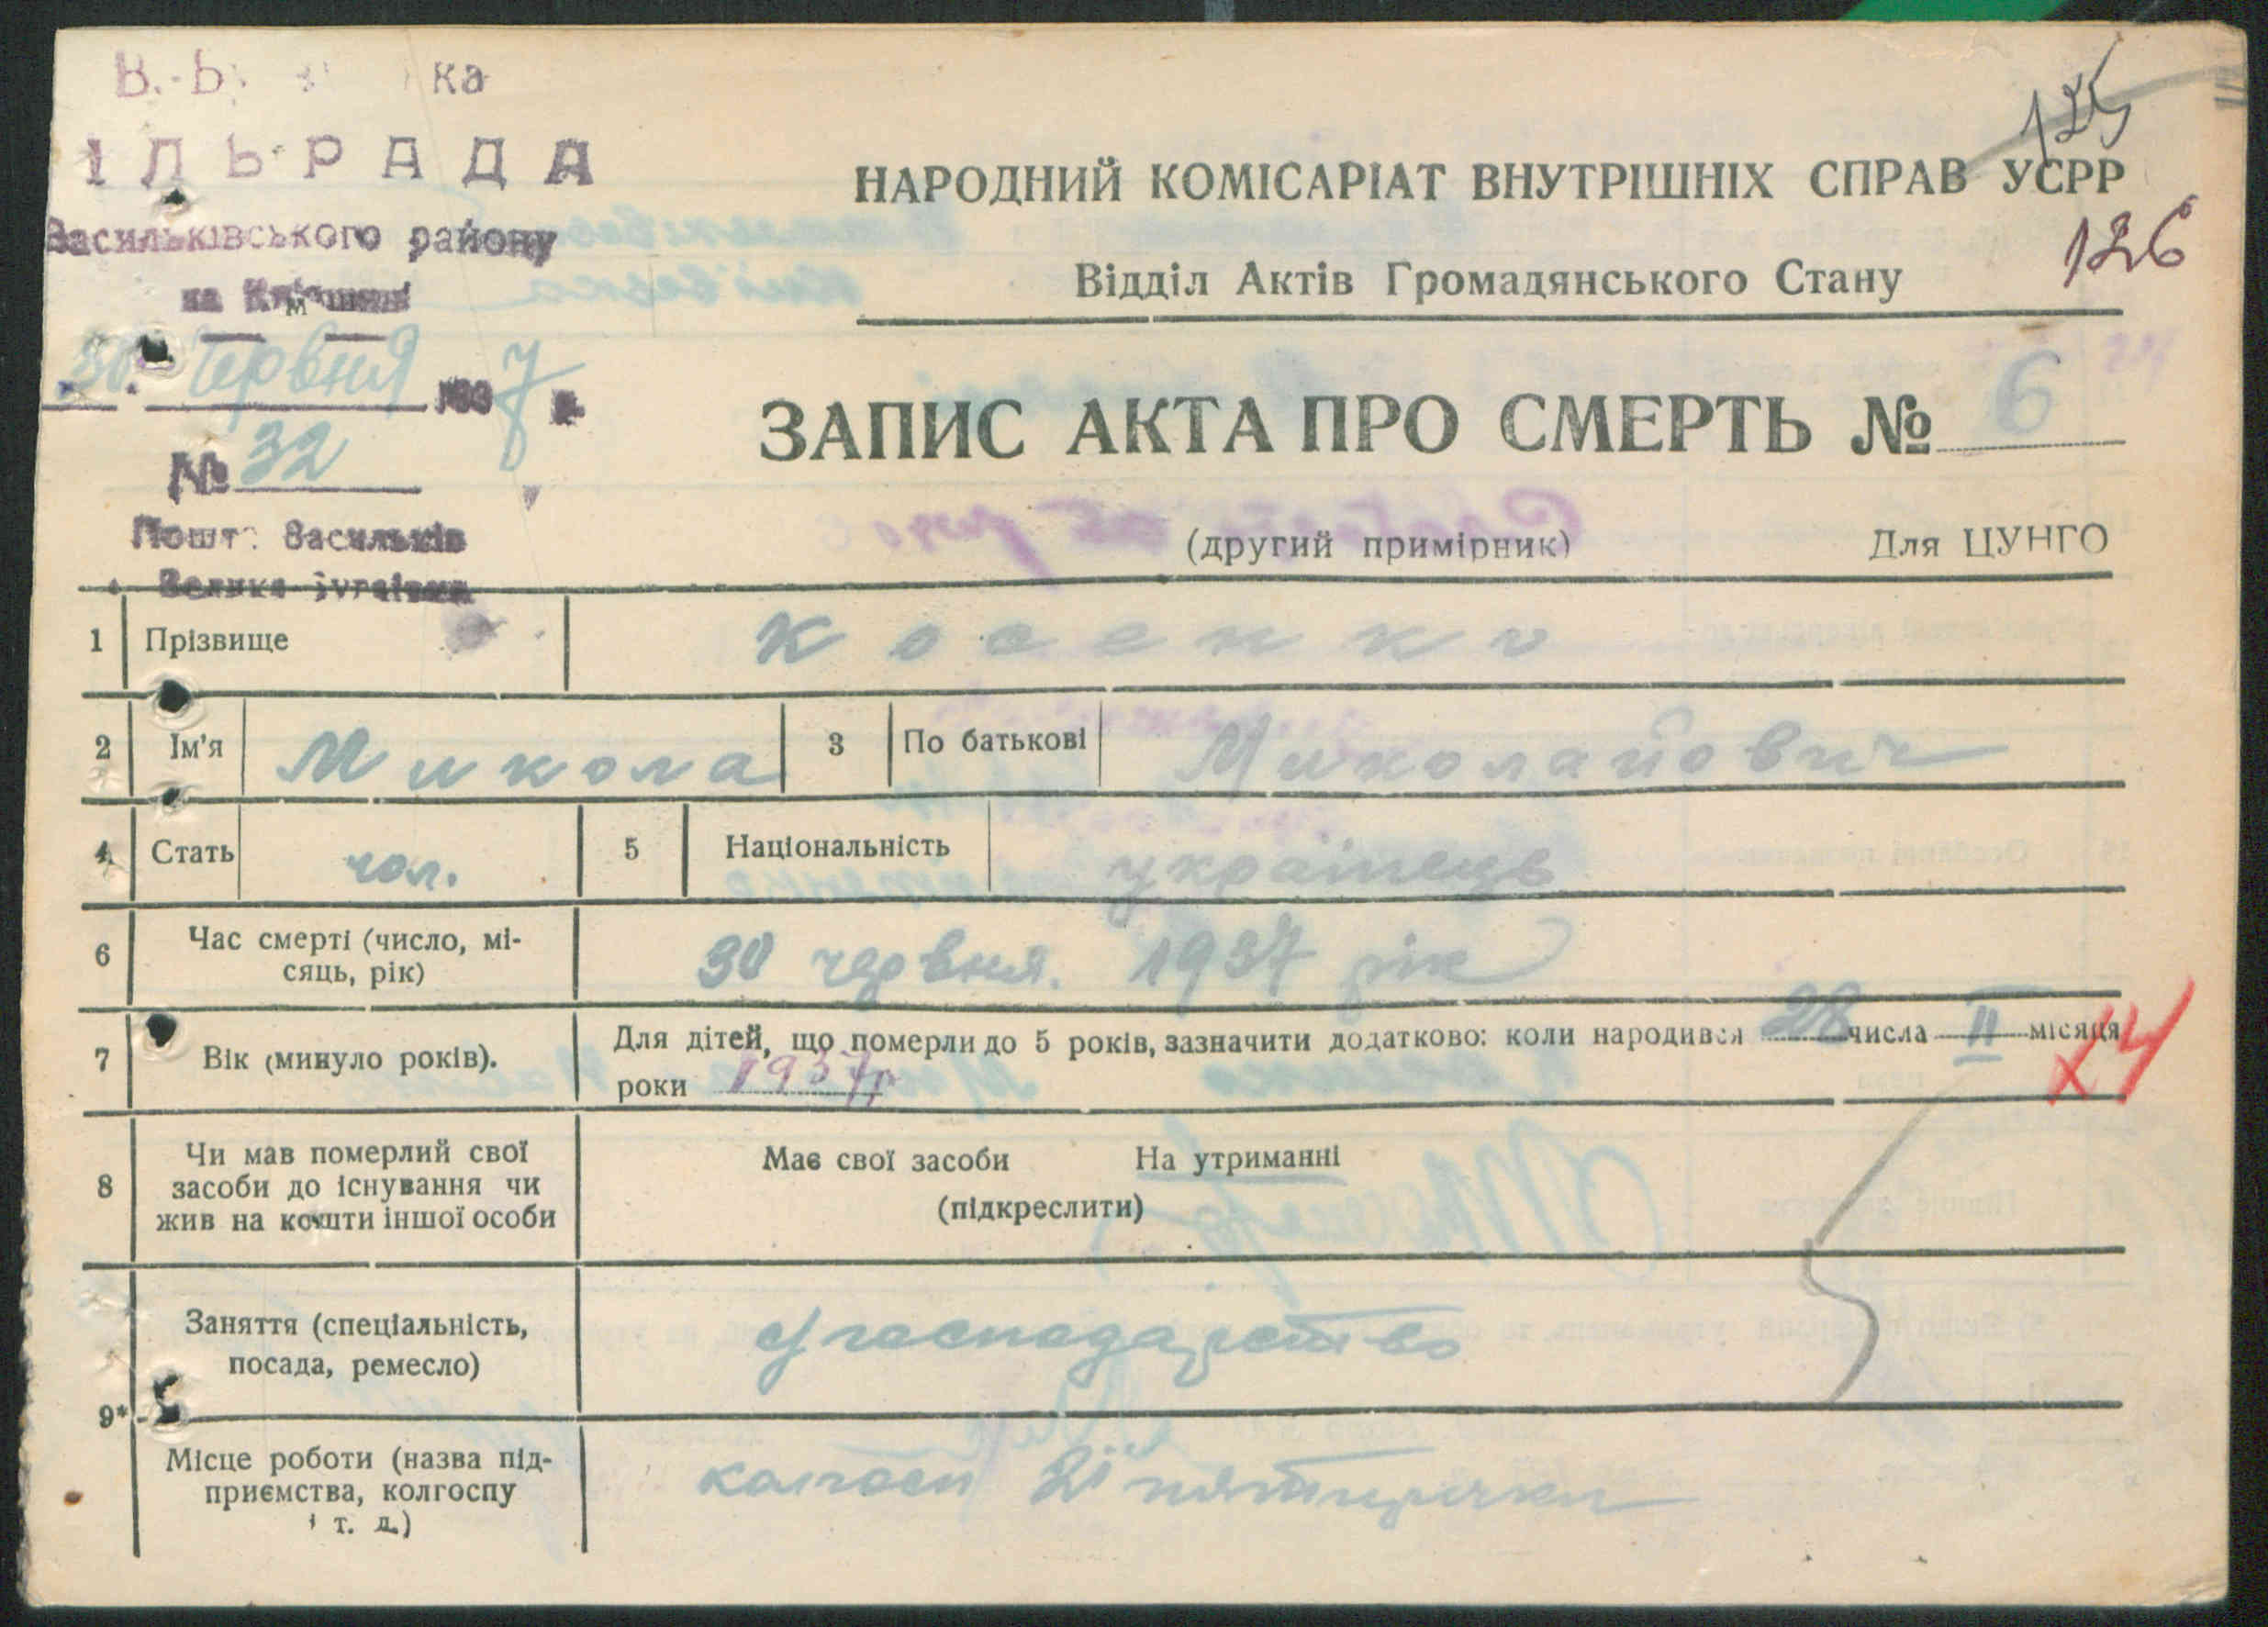 ка
ІЛЬРАДА
Васильківського району
на Київщині
30 Червня 1937 р.
№ 32
Пошт. Васильків
Велика
125
126
НАРОДНИЙ КОМІСАРІАТ ВНУТРІШНІХ СПРАВ УСРР
Відділ Актів Громадянського Стану
ЗАПИС АКТА ПРО СМЕРТЬ № 6
(другий примірник) Для ЦУНГО
1 Прізвище Косенко
2 Ім'я Микола 3 По батькові Миколайович
4 Стать чол. 5 Національність українець
6 Час смерті (число, мі-
сяць, рік) 30 червня. 1937 рік
7 Вік (минуло років). Для дітей, що померли до 5 років, зазначити додатково: коли народився 28 числа II місяця
роки 1937 р
8 Чи мав померлий свої
засоби до існування чи
жив на кошти іншої особи
Має свої засоби На утриманні
(підкреслити)
9* Заняття (спеціальність,
посада, ремесло) господарство
Місце роботи (назва під-
приємства, колгоспу
і т. д.) колгосп 2ї пятирічки